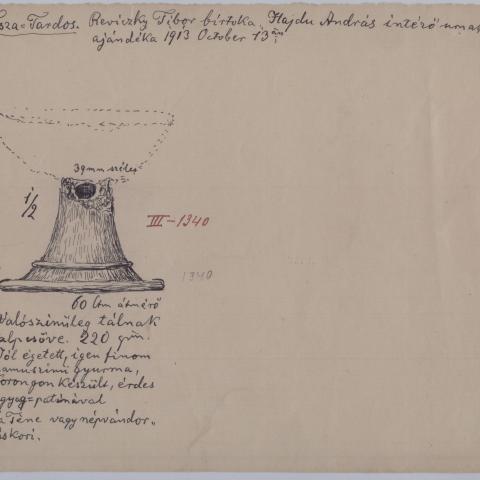 sza=Tardos. Reviczky Tibor birtoka. Hajdu András intéző urnak
ajándéka 1913 October 13án
39mm széles
1/2
III-1340
1340
60 Ctm átmérő
Valószinűleg tálnak
alpcsöve. 220 grm
Jól égetett, igen finom
hamuszinű gyurma,
korongon készült, érdes
agyag=patinával
La Téne vagy népvándor„
láskori.